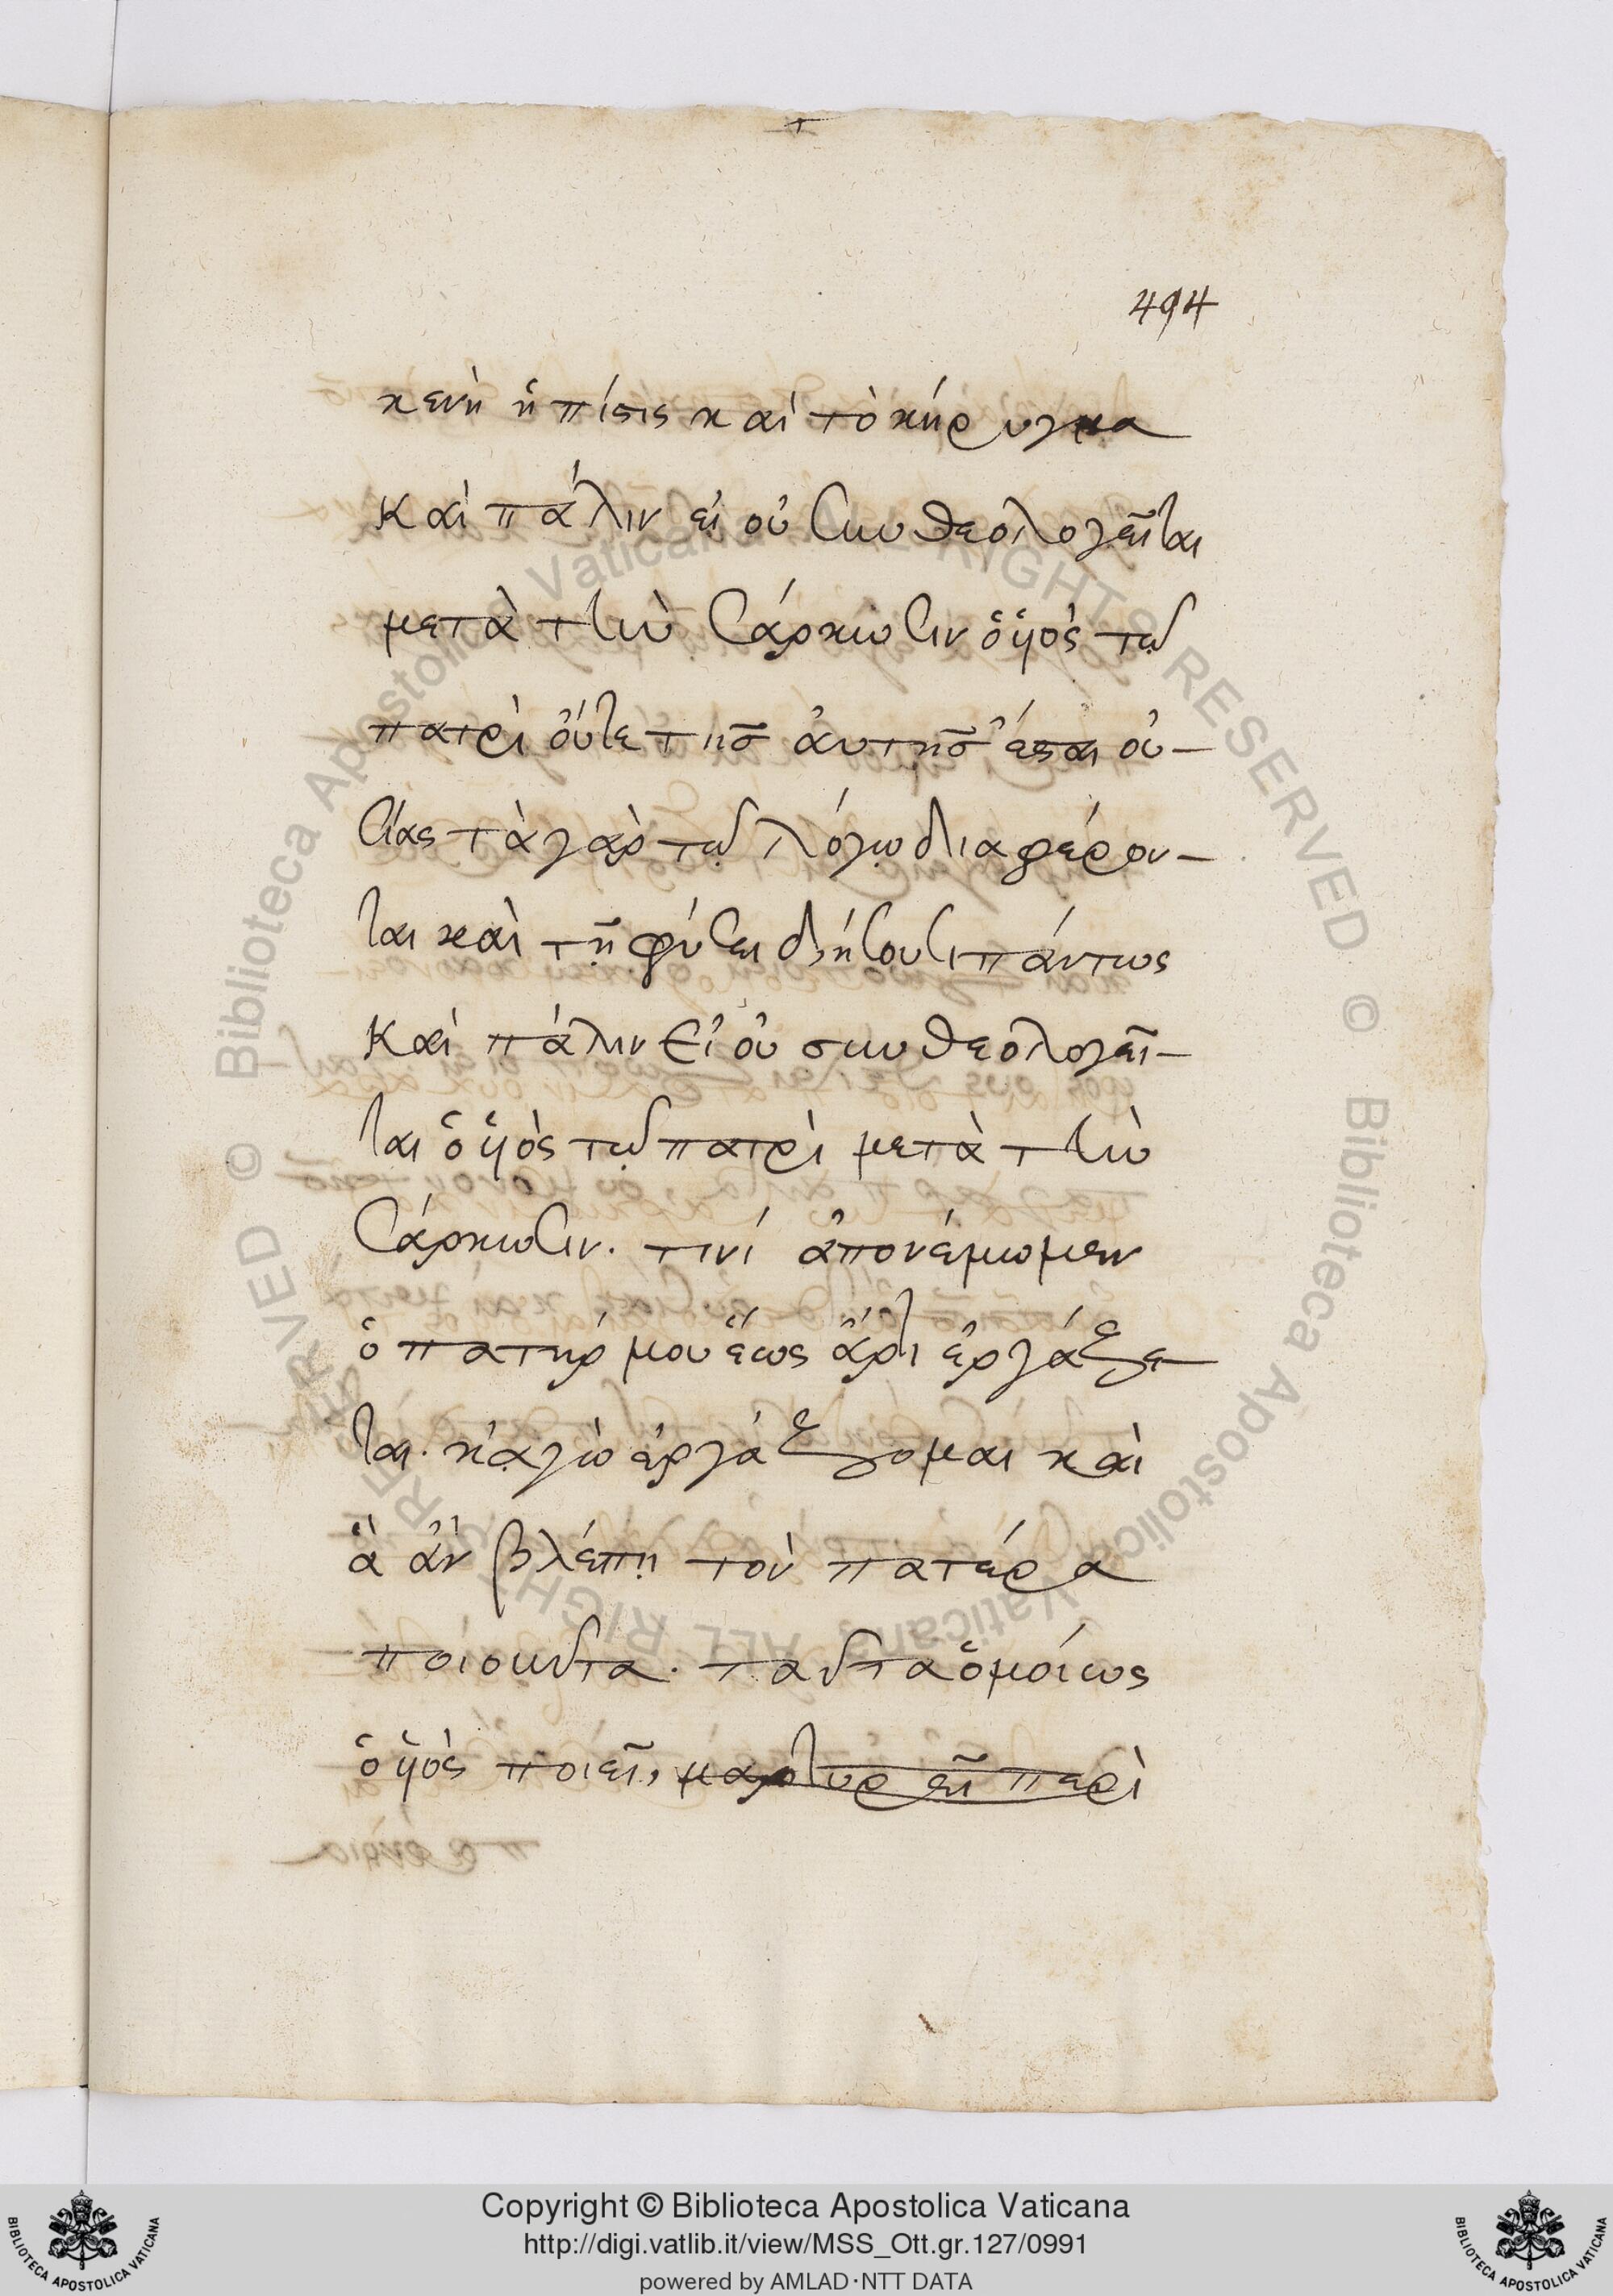 494
κενὴ ἡ πίστις καὶ τὸ κήρυγμα
Καὶ πάλιν εἰ οὐ συνθεολογεῖται
μετὰ τὴν σάρκωσιν ὁ υἱὸς τῷ
πατρὶ οὔτε τῆς ἀυτῆς ἔσται οὐ-
σίας τὰ γὰρ τῷ λόγῳ διαφέρον-
ται καὶ τῇ φύσει δ
πάντως
Καὶ πάλιν Εἰ οὐ συνθεολογεῖ-
ται ὁ υἱὸς τῷ πατρὶ μετὰ τὴν
σάρκωσιν. τινί ἀπονέμωμεν
ὁ πατήρ μου ἕως ἄρτι ἐργάζε-
ται. κἀγὼ ἐργάζομαι καὶ
ἃ ἂν βλέπῃ τὸν πατέρα
ποιοῦντα. ταῦτα ὁμοίως
ὁ υἱὸς ποιεῖ, μαρτυρεῖ περὶ
Copyright © Biblioteca Apostolica Vaticana
http://digi.vatlib.it/view/MSS_Ott.gr.127/0991
powered by AMLAD·NTT DATA
BIBLIOTECA APOSTOLICA VATICANA
BIBLIOTECA APOSTOLICA VATICANA
© Biblioteca Apostolica Vaticana ALL RIGHTS RESERVED
© Biblioteca Apostolica Vaticana ALL RIGHTS RESERVED